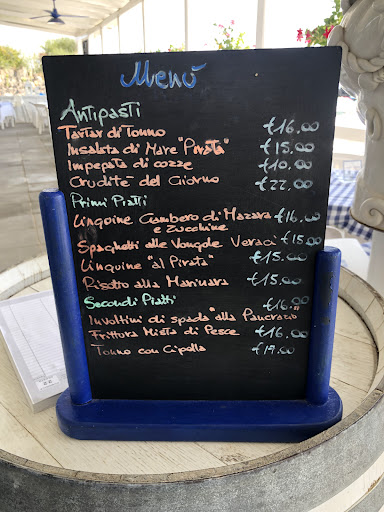 Menù
Antipasti
Tartar di Tonno €16.00
Insalata di Mare "Pirata" €15.00
Impepata di cozze €10.00
Crudité del Giorno €22.00
Primi Piatti
Linguine Gambero di Mazara €16.00
e Zucchine
Spaghetti alle Vongole Veraci €15.00
Linguine "al Pirata" €15.00
Risotto alla Marinara €15.00
Secondi Piatti
Involtini di spada "alla Pancrazio" €16.00
Frittura Mista di Pesce €16.00
Tonno con Cipolla €17.00